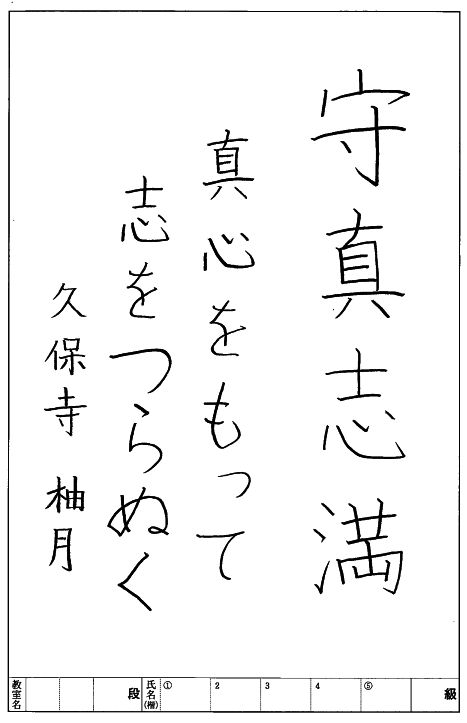 守真志満
真心をもって
志をつらぬく
久保寺 柚月
級 ⑤ 4 3 2 ① 氏名(欄) 段 教室名